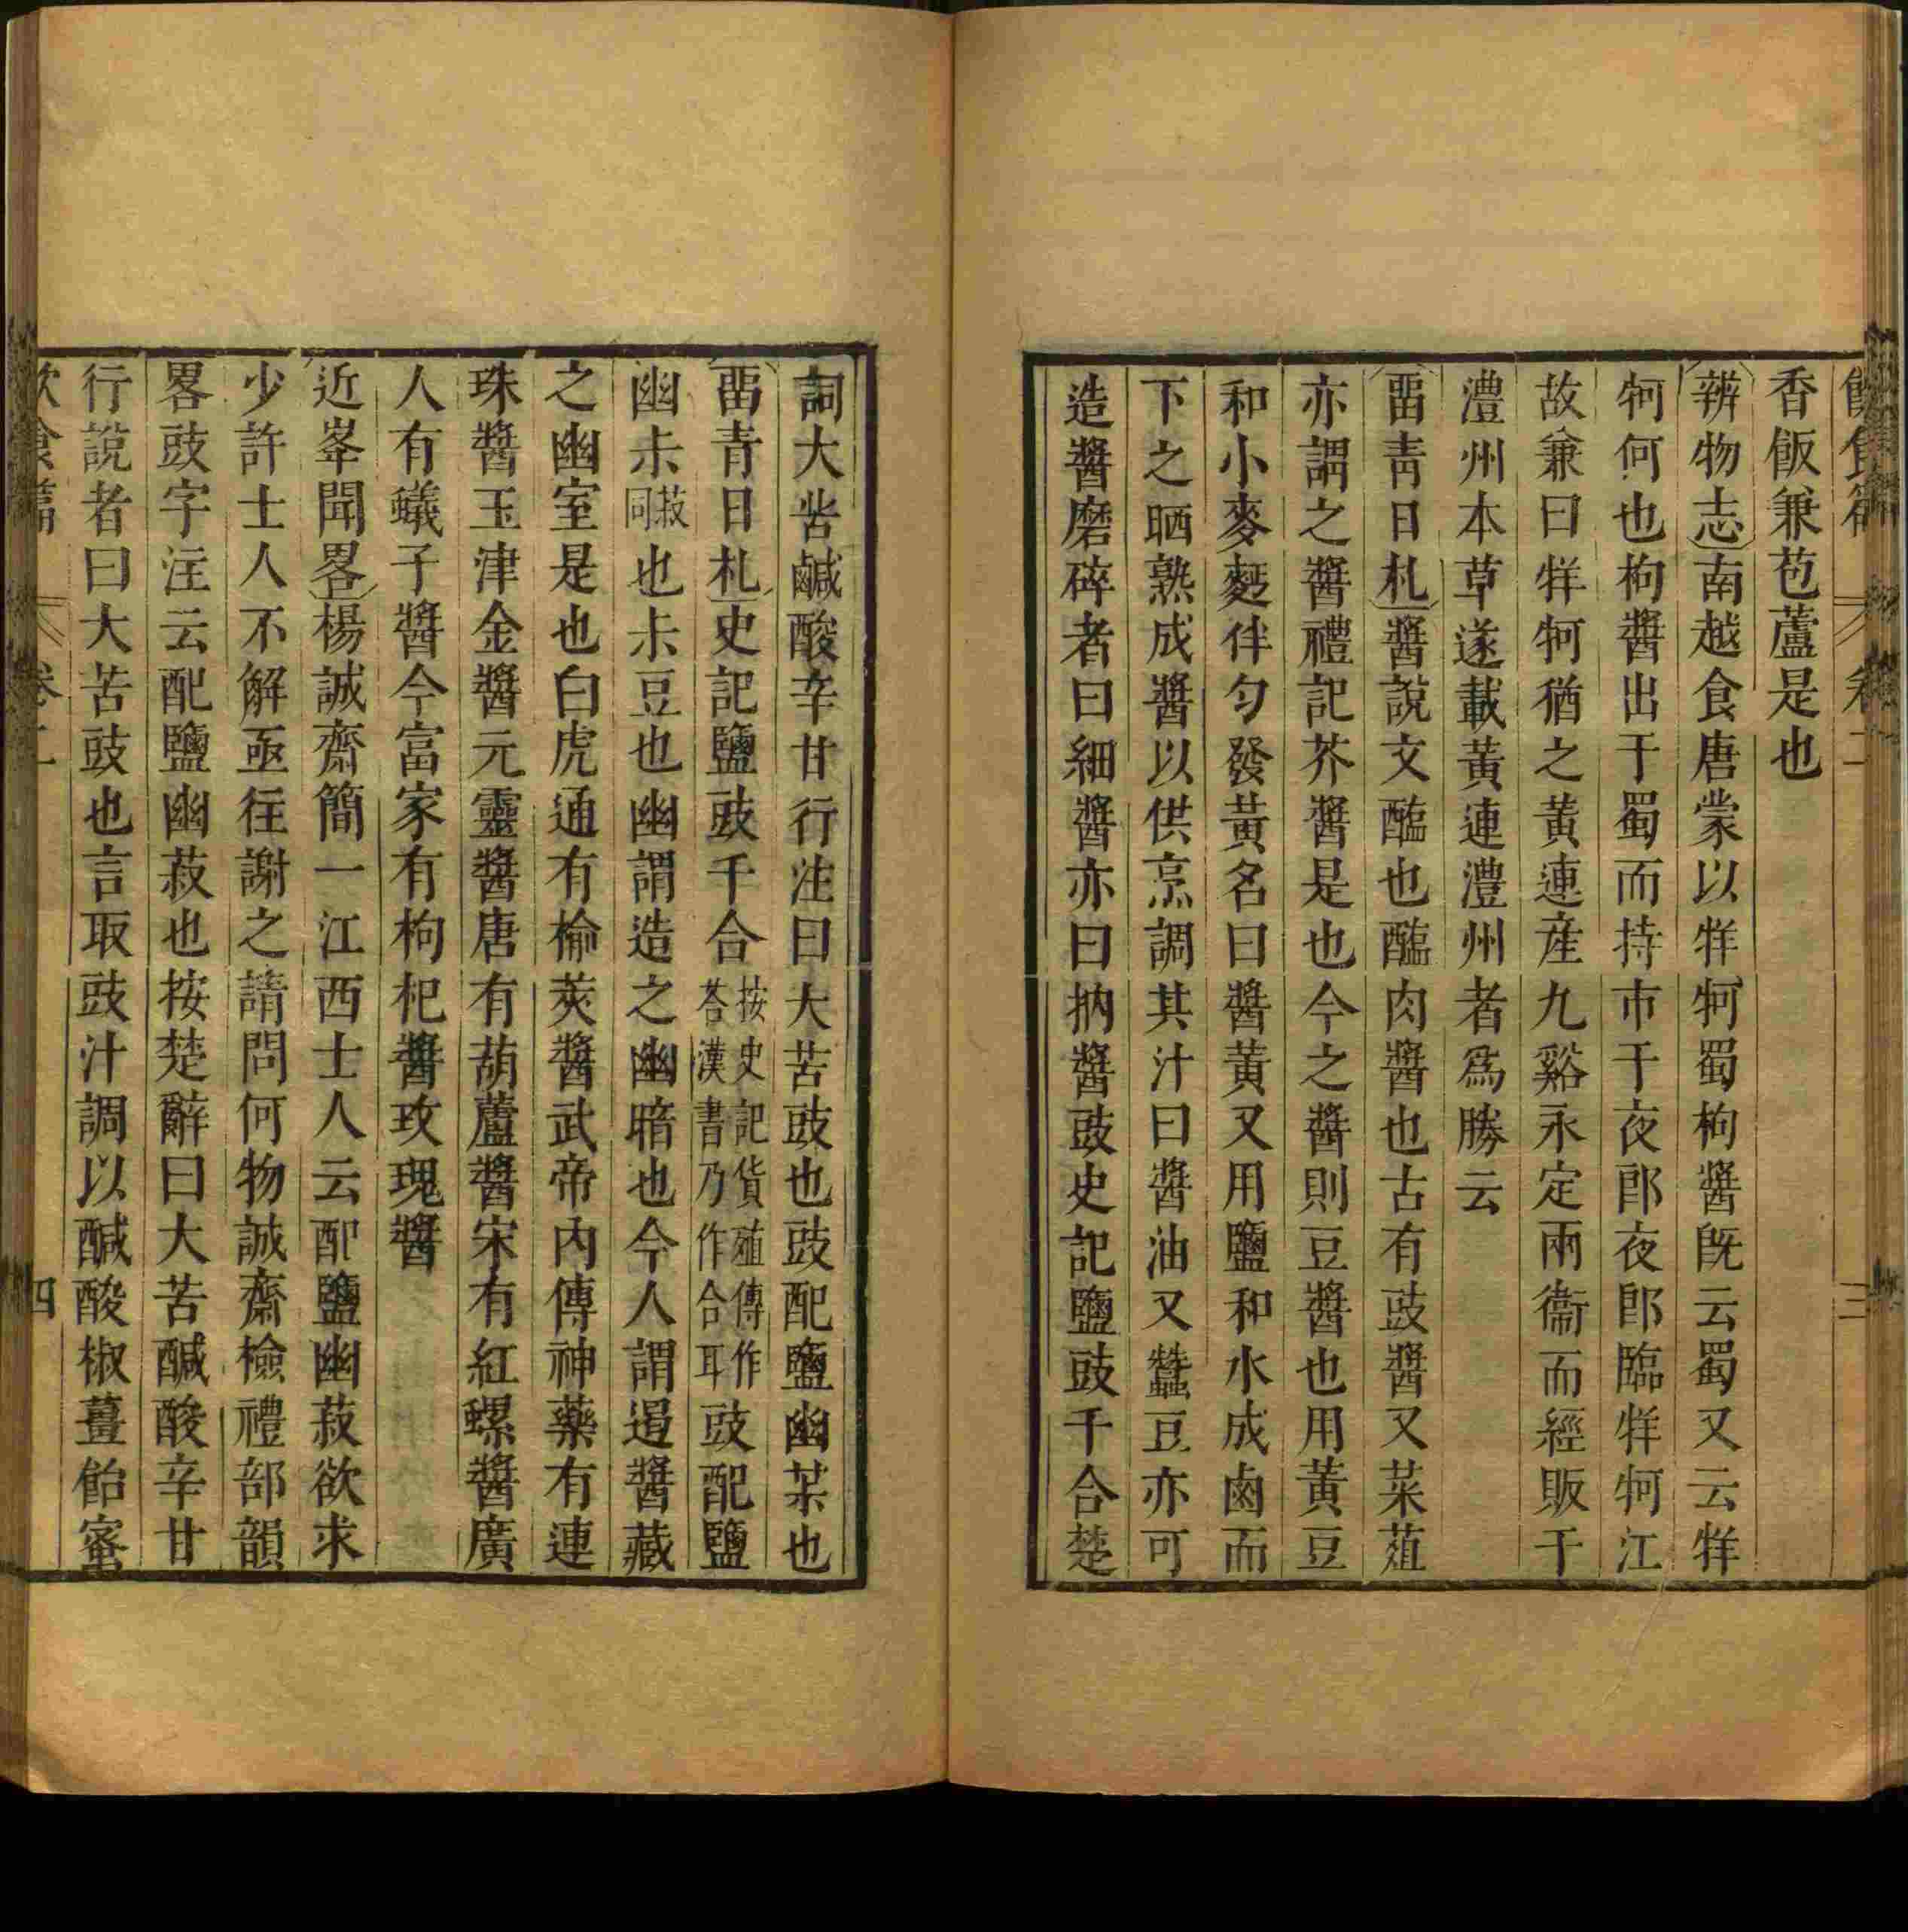 飲食篇 卷二 三
香飯兼苞蘆是也
辨物志南越食唐蒙以牂牁蜀枸醬旣云蜀又云牂
牁何也枸醬出于蜀而持市于夜郎夜郎臨牂牁江
故兼曰牂牁猶之黃連産九谿永定兩衞而經販于
澧州本草遂載黃連澧州者爲勝云
畱靑日札醬說文醢也醢肉醬也古有豉醬又菜葅
亦謂之醬禮記芥醬是也今之醬則豆醬也用黃豆
和小麥麪伴匀發黃名曰醬黃又用鹽和水成鹵而
下之晒熟成醬以供烹調其汁曰醬油又蠶豆亦可
造醬磨碎者曰細醬亦曰抐醬豉史記鹽豉千合楚
詞大苦鹹酸辛甘行注曰大苦豉也豉配鹽幽尗也
畱青日札史記鹽豉千合按史記貨殖傳作荅漢書乃作合耳豉配鹽
幽尗菽同也尗豆也幽謂造之幽暗也今人謂遏醬藏
之幽室是也白虎通有楡莢醬武帝內傳神藥有連
珠醬玉津金醬元靈醬唐有葫蘆醬宋有紅螺醬廣
人有蟻子醬今富家有枸杞醬玫瑰醬
近峯聞畧楊誠齋簡一江西士人云配鹽幽菽欲求
少許士人不解亟往謝之請問何物誠齋檢禮部韻
畧豉字注云配鹽幽菽也按楚辭曰大苦醎酸辛甘
行說者曰大苦豉也言取豉汁調以醎酸椒薑飴蜜
飲食篇 卷二 四